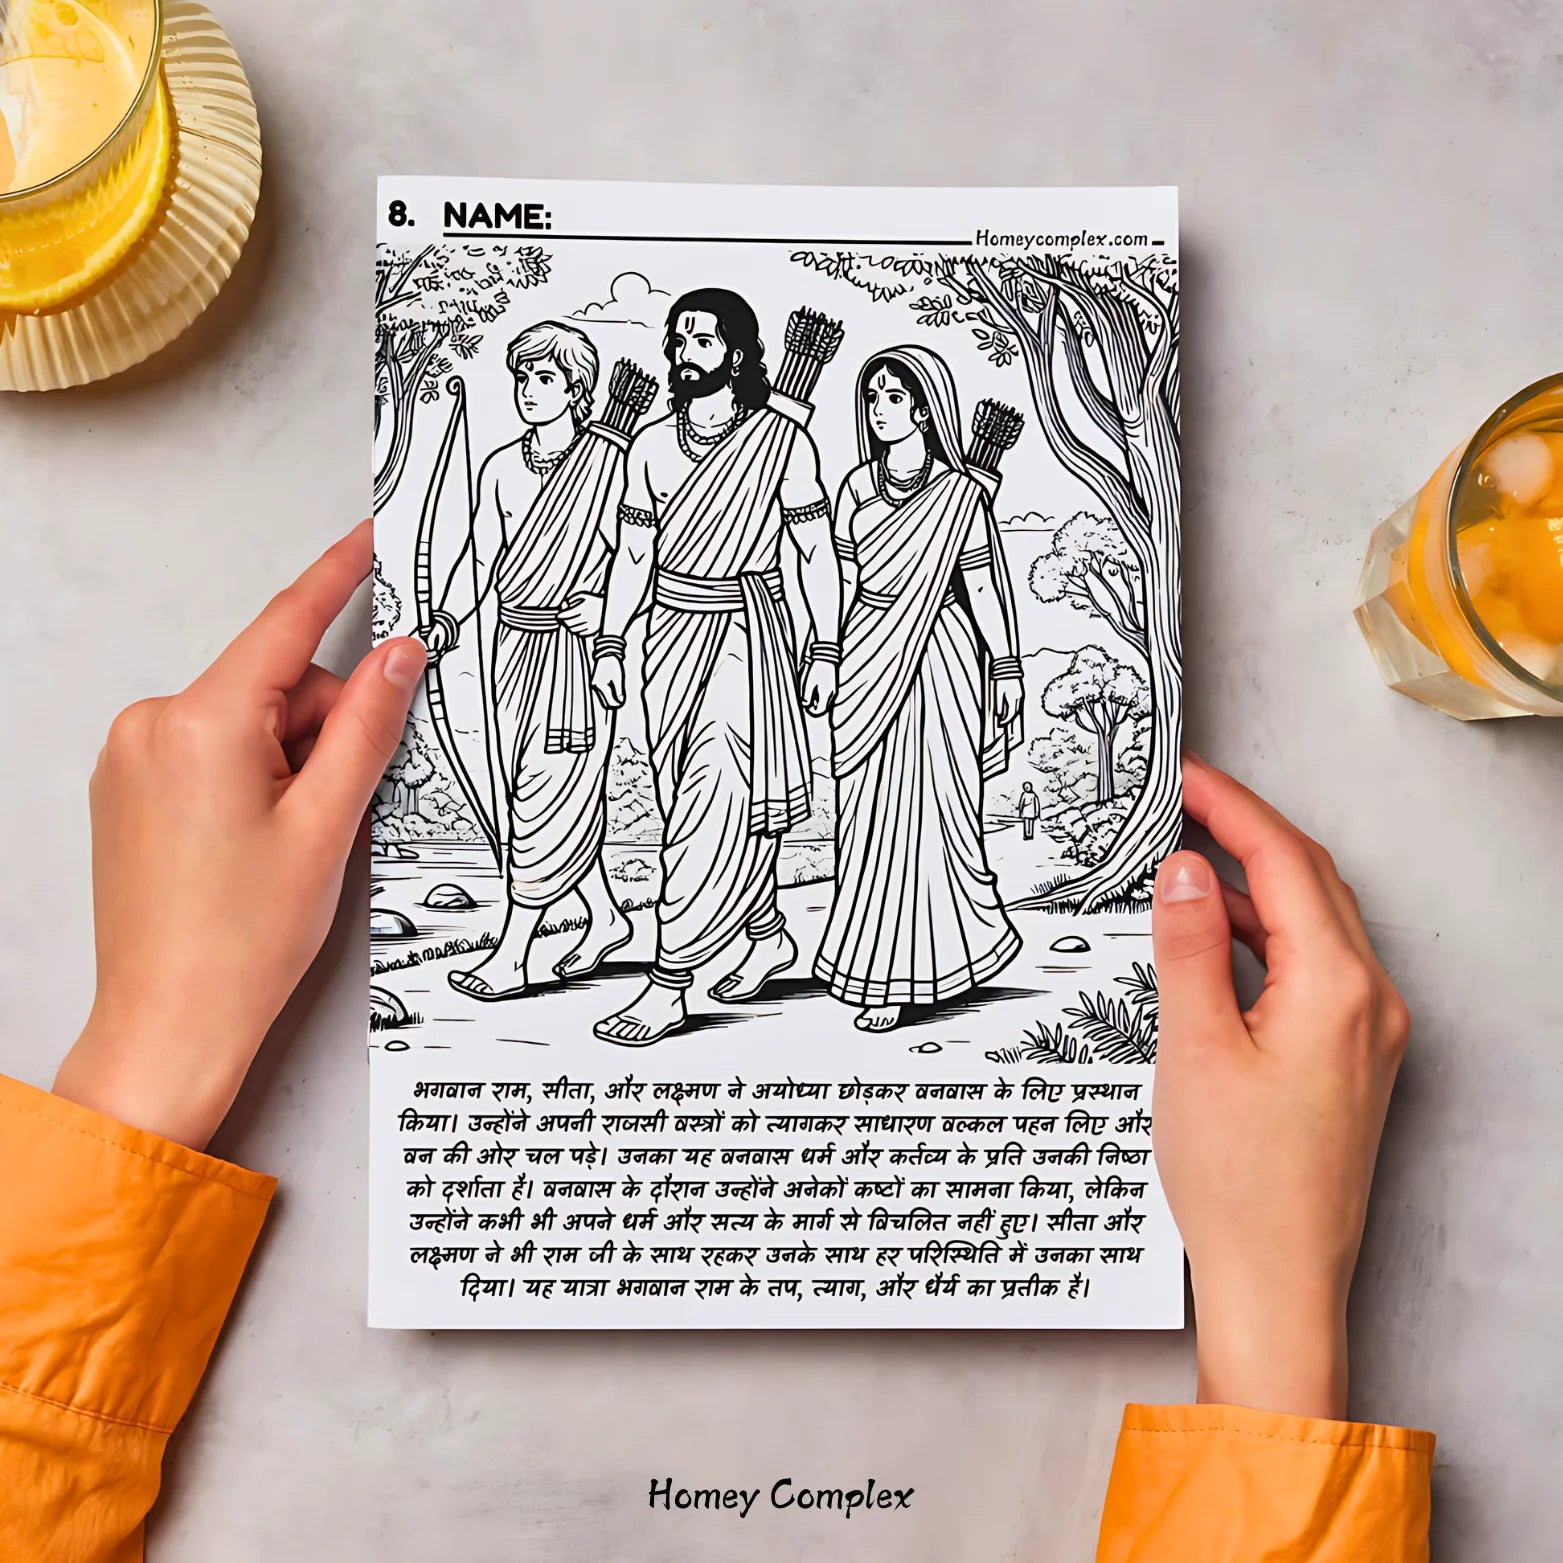 8. NAME:
Homeycomplex.com
भगवान राम, सीता, और लक्ष्मण ने अयोध्या छोड़कर वनवास के लिए प्रस्थान
किया। उन्होंने अपनी राजसी वस्त्रों को त्यागकर साधारण वल्कल पहन लिए और
वन की ओर चल पड़े। उनका यह वनवास धर्म और कर्तव्य के प्रति उनकी निष्ठा
को दर्शाता है। वनवास के दौरान उन्होंने अनेकों कष्टों का सामना किया, लेकिन
उन्होंने कभी भी अपने धर्म और सत्य के मार्ग से विचलित नहीं हुए। सीता और
लक्ष्मण ने भी राम जी के साथ रहकर उनके साथ हर परिस्थिति में उनका साथ
दिया। यह यात्रा भगवान राम के तप, त्याग, और धैर्य का प्रतीक है।
Homey Complex